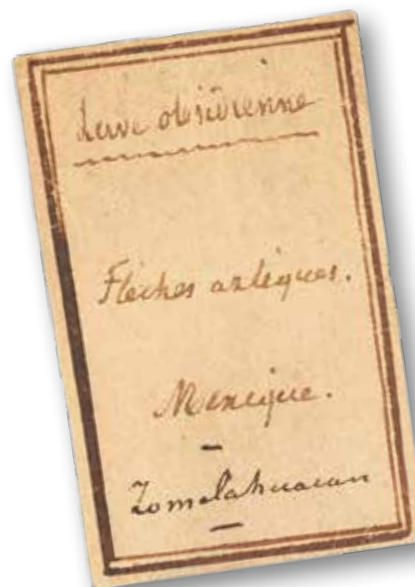 Lave obsidienne
Flèches aztèques.
Mexique.
Zomelahuacan